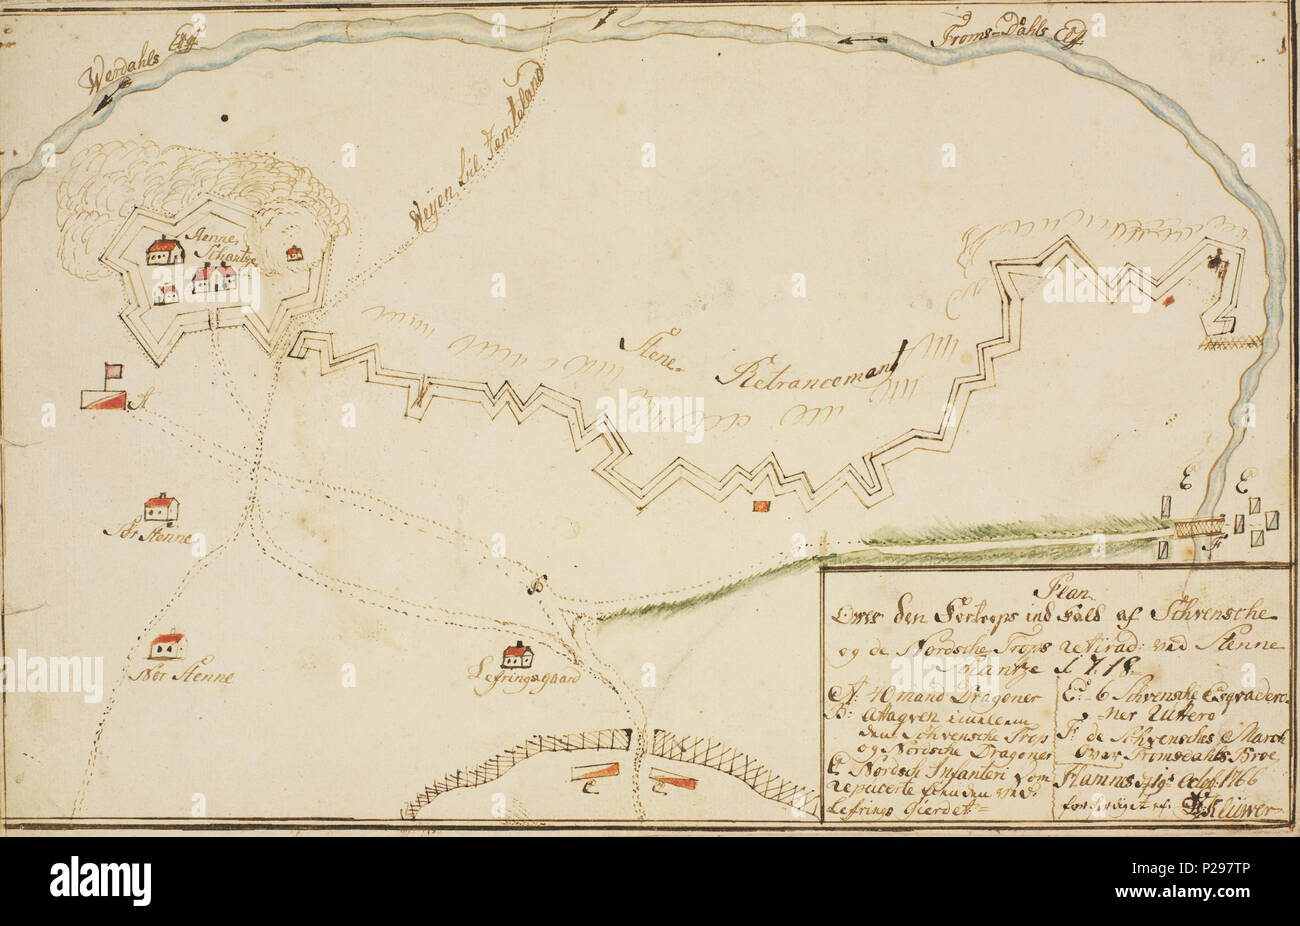 Werdahls Elf
Froms=Dahls Elf
Weyen til Jemteland
Stenne
Schantze
Stene
Retrancemant
A
Sør Stenne
Nør Stenne
B
Lefrings gaard
C
C
E
E
F
Plan
Over den Fortrops ind Fald af Schvensche
og de Nordsche Trops retirad: ved Stenne
Schantze 1718
A: 40 mand Dragoner
B: Attaqven imellem
den Schvensche Trop
og Norische Dragoner
C Nordsch Infanteri som
reputerte
Lefrings Gierdet=
E: 6 Schvensche Esqvadero
ner Rüttero
F: de Schvensches March
over Fromsdahls Broe
Flamnes d 19 Octbr: 1766
forferdiget af Klüwer
alamy
a
alamy stock photo
Image ID: P297TP
www.alamy.com